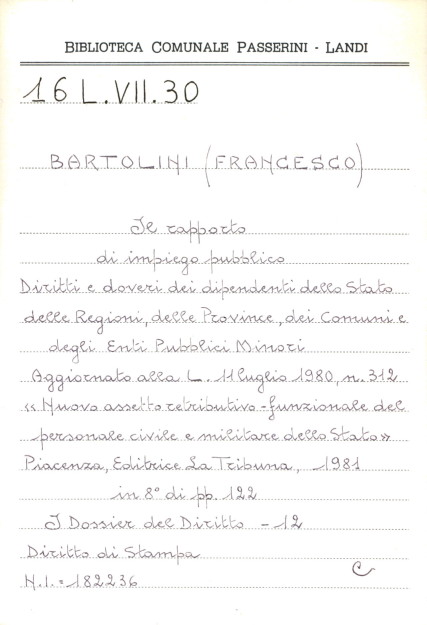 BIBLIOTECA COMUNALE PASSERINI - LANDI
16 L.VII.30
BARTOLINI (FRANCESCO)
Il rapporto
di impiego pubblico
Diritti e doveri dei dipendenti dello Stato
delle Regioni, delle Province, dei Comuni e
degli Enti Pubblici Minori
Aggiornato alla L. 11 luglio 1980, n. 312
«Nuovo assetto retributivo-funzionale del
personale civile e militare dello Stato»
Piacenza, Editrice La Tribuna, 1981
in 8° di pp. 122
I Dossier del Diritto - 12
Diritto di Stampa
N.I. = 182236
C